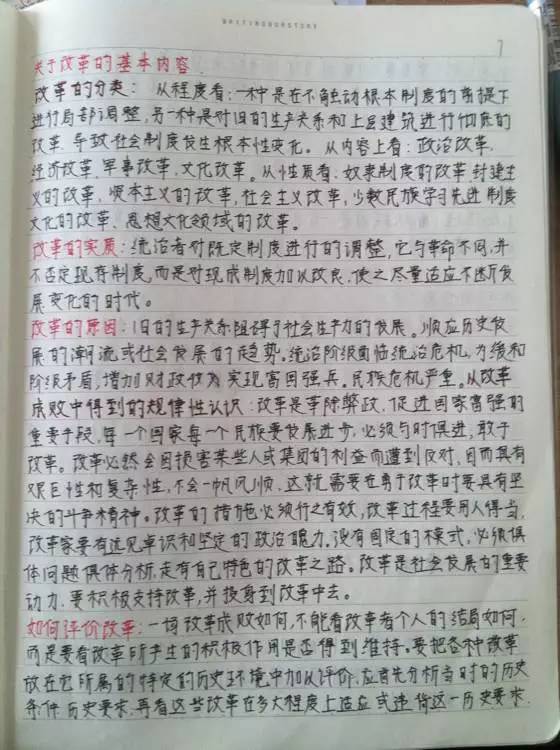 7
关于改革的基本内容
改革的分类：从程度看：一种是在不触动根本制度的前提下
进行局部调整，另一种是对旧的生产关系和上层建筑进行彻底的
改革，导致社会制度发生根本性变化。从内容上看：政治改革，
经济改革，军事改革，文化改革。从性质看：奴隶制度的改革，封建主
义的改革，资本主义的改革，社会主义改革，少数民族学习先进制度
文化的改革、思想文化领域的改革。
改革的实质：统治者对既定制度进行的调整，它与革命不同，并
不否定现存制度，而是对现成制度加以改良，使之尽量适应不断发
展变化的时代。
改革的原因：旧的生产关系阻碍了社会生产力的发展。顺应历史发
展的潮流或社会发展的趋势。统治阶级面临统治危机，为缓和
阶级矛盾，增加财政收入，实现富国强兵。民族危机严重。从改革
成败中得到的规律性认识：改革是革除弊政，促进国家富强的
重要手段，每一个国家每一个民族要发展进步，必须与时俱进，敢于
改革。改革必然会因损害某些人或集团的利益而遭到反对，因而具有
艰巨性和复杂性，不会一帆风顺，这就需要在勇于改革时要具有坚
决的斗争精神。改革的措施必须行之有效，改革过程要用人得当，
改革家要有远见卓识和坚定的政治魄力。没有固定的模式，必须具
体问题具体分析，走有自己特色的改革之路。改革是社会发展的重要
动力，要积极支持改革，并投身到改革中去。
如何评价改革：一场改革成败如何，不能看改革者个人的结局如何，
而是要看改革所产生的积极作用是否得到维持。要把各种改革
放在它所属的特定的历史环境中加以评价，应首先分析当时的历史
条件，历史要求，再看这些改革在多大程度上适应或违背这一历史要求，